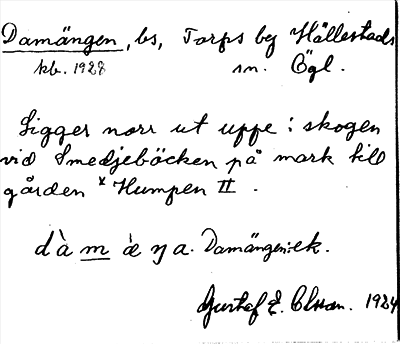 Damängen, bs, Torps by Hällestads
kb. 1928 sn. Ögl.
Ligger norr ut uppe i skogen
vid Smedjebäcken på mark till
gården x Humpen II.
dàmæ̀ŋa. Damängen: ek.
Gustaf E. Olsson. 1924